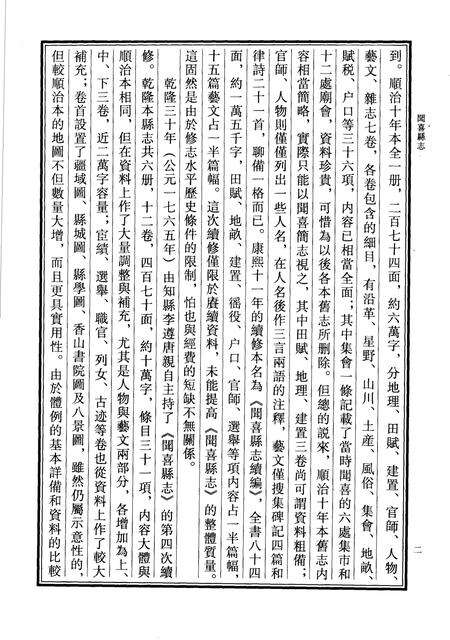 聞喜縣志
到。順治十年本全一册，二百七十四面，約六萬字，分地理、田賦、建置、官師、人物、
藝文、雜志七卷，各卷包含的細目，有沿革、星野、山川、土産、風俗、集會、地畝、
賦税、户口等三十六項，内容已相當全面；其中集會一條記載了當時聞喜的六處集市和
十二處廟會，資料珍貴，可惜為以後各本舊志所删除。但總的説來，順治十年本舊志内
容相當簡略，實際只能以聞喜簡志視之，其中田賦、地理、建置三卷尚可謂資料粗備；
官師、人物則僅僅列出一些人名，在人名後作三言兩語的注釋，藝文僅搜集碑記四篇和
律詩二十一首，聊備一格而已。康熙十一年的續修本名為《聞喜縣志續編》，全書八十四
面，約一萬五千字，田賦、地畝、建置、徭役、户口、官師、選舉等項内容占一半篇幅，
十五篇藝文占一半篇幅。這次續修僅限於賡續資料，未能提高《聞喜縣志》的整體質量。
這固然是由於修志水平歷史條件的限制，怕也與經費的短缺不無關係。
乾隆三十年（公元一七六五年）由知縣李遵唐親自主持了《聞喜縣志》的第四次續
修。乾隆本縣志共六册，十二卷，四百七十面，約十萬字，條目三十一項，内容大體與
順治本相同，但在資料上作了大量調整與補充，尤其是人物與藝文兩部分，各增加為上、
中、下三卷，近二萬字容量；宦績、選舉、職官、列女、古迹等卷也從資料上作了較大
補充；卷首設置了疆域圖、縣城圖、縣學圖、香山書院圖及八景圖，雖然仍屬示意性的，
但較順治本的地圖不但數量大增，而且更具實用性。由於體例的基本詳備和資料的比較
二